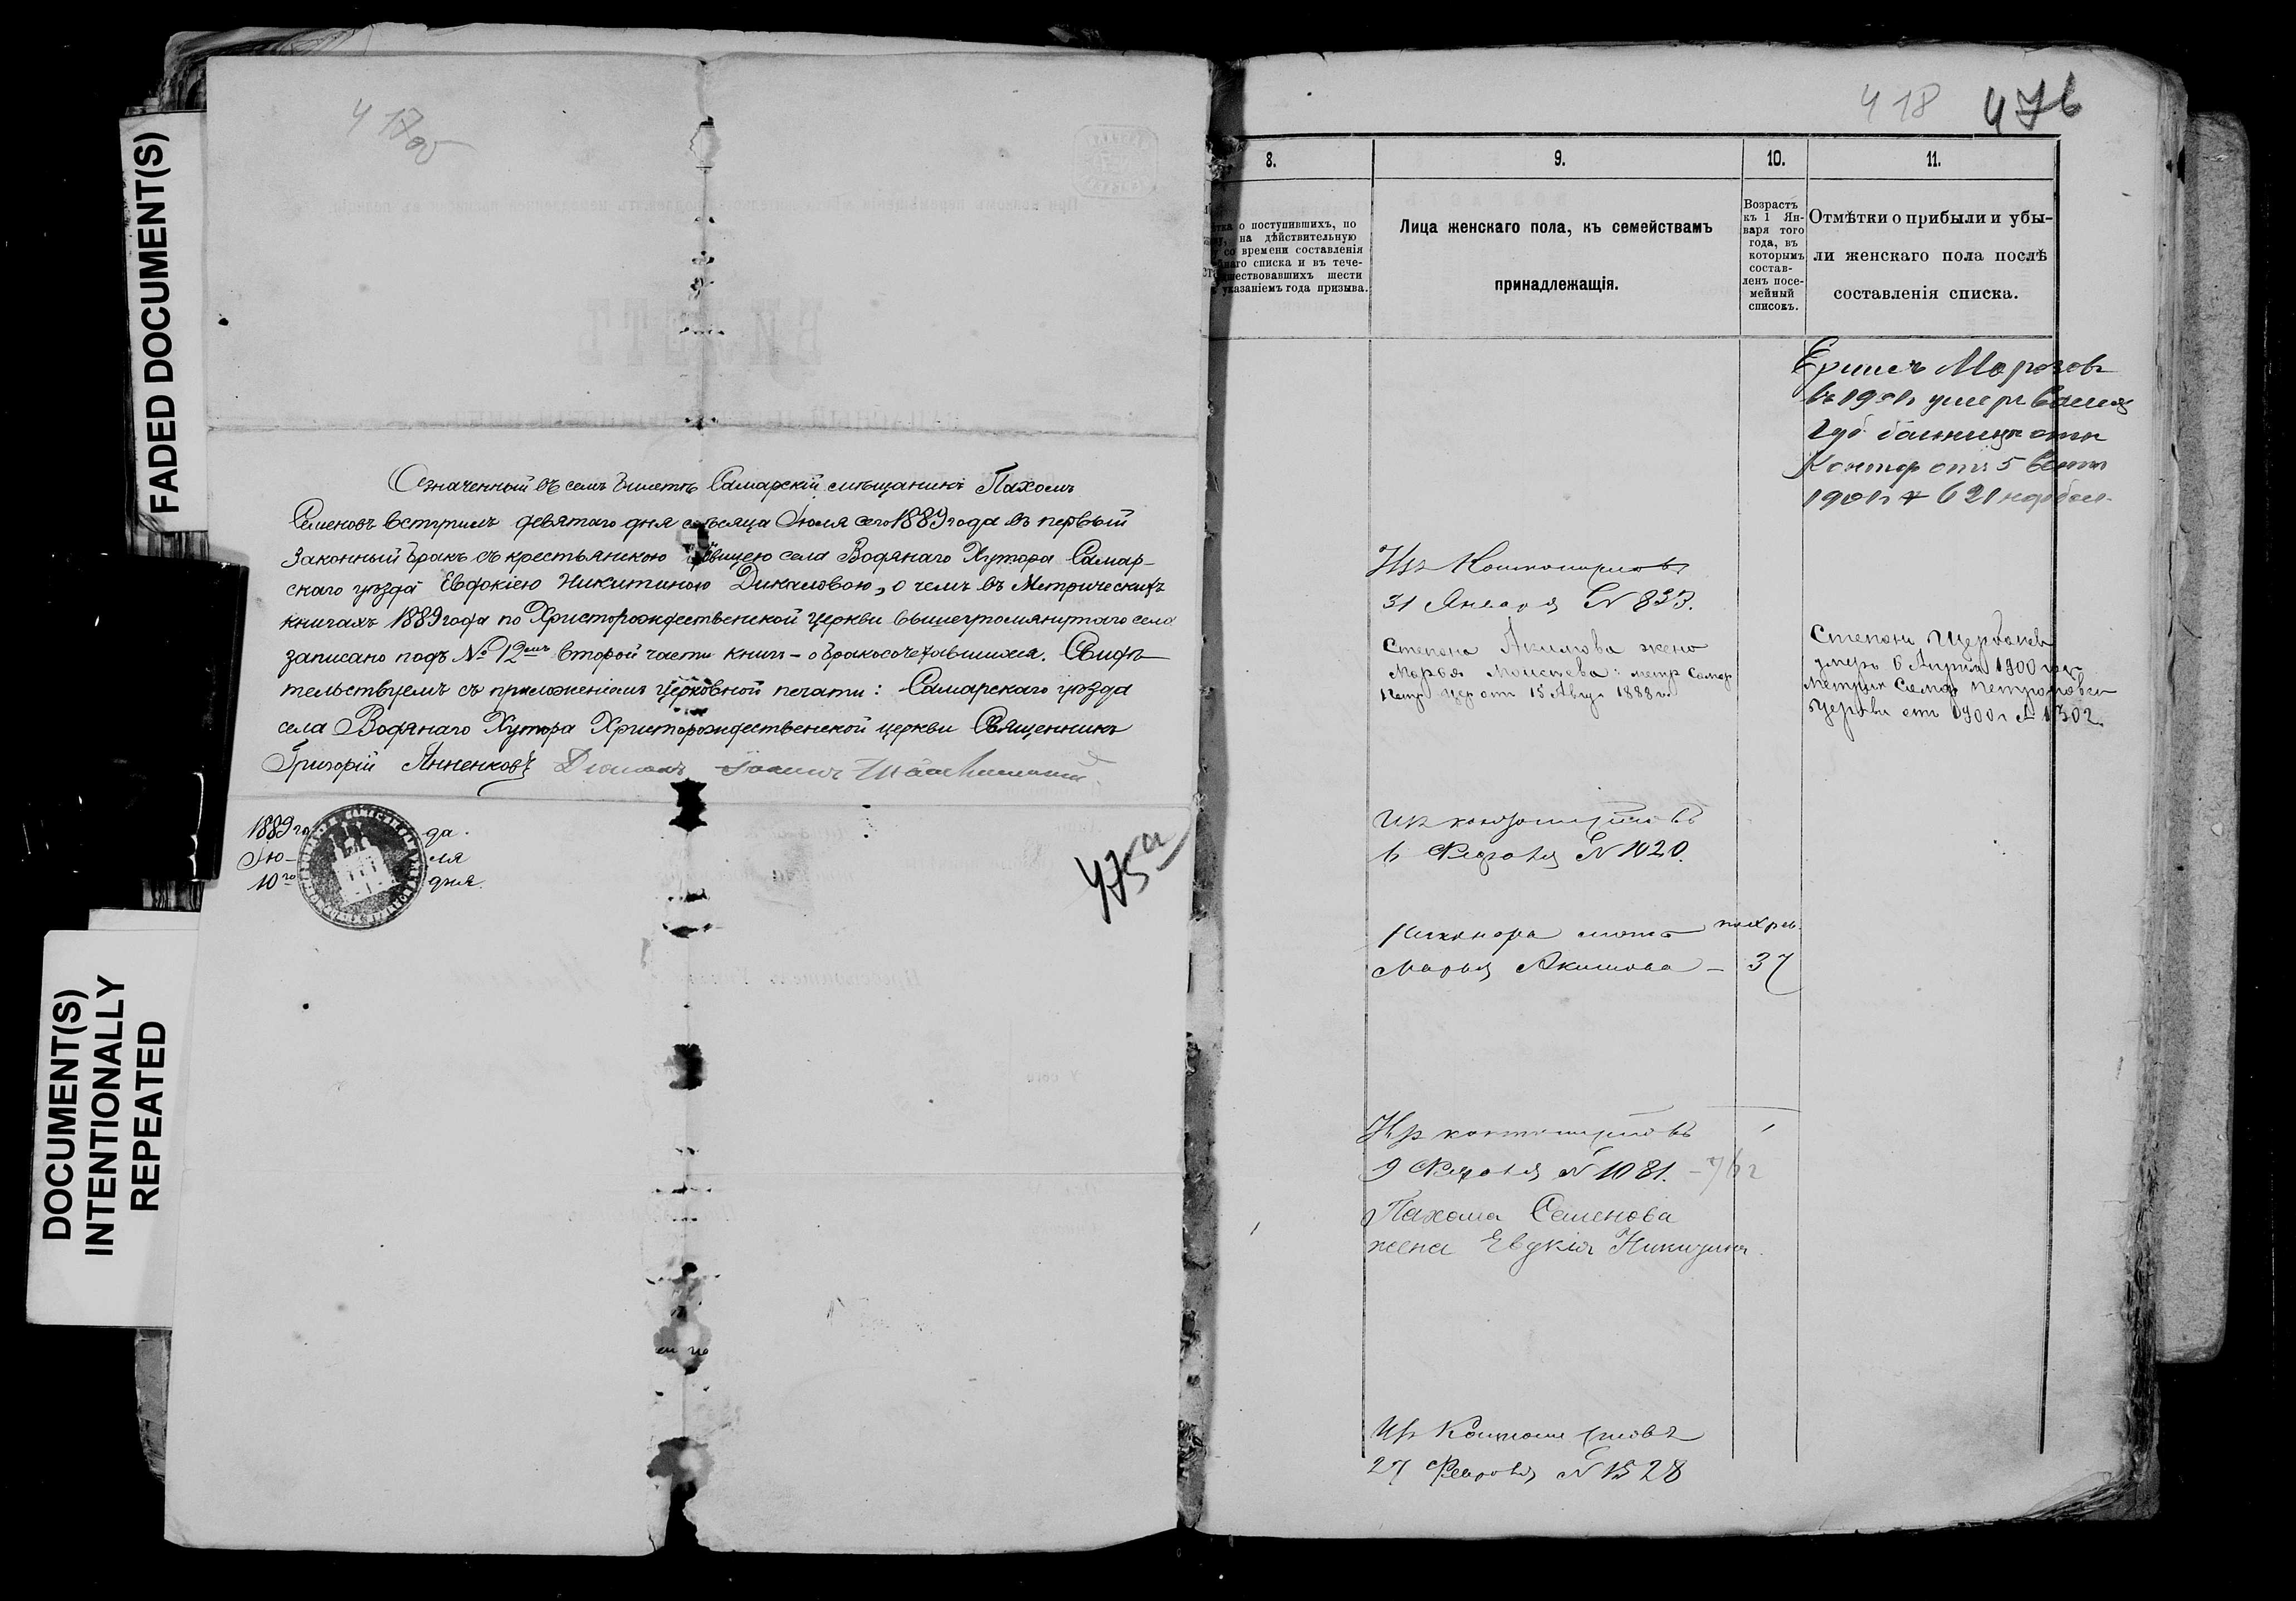 FADED DOCUMENT(S)
DOCUMENT(S)
INTENTIONALLY
REPEATED
418
475а
Означенный въ семъ билетѣ Самарскій мѣщанинъ Пахомъ
Семеновъ вступилъ девятаго дня мѣсяца Іюля сего 1889 года въ первый
законный бракъ съ крестьянскою дѣвицею села Водянаго Хутора Самар-
скаго уѣзда Евдокіею Никитиною Дикаловою, о чемъ въ Метрическихъ
книгахъ 1889 года по Христорождественской церкви вышеупомянутаго села
записано подъ № 12емъ второй части книги – о бракосочетавшихся. Свидѣ-
тельствуемъ съ приложеніемъ церковной печати: Самарскаго уѣзда
села Водянаго Хутора Христорождественской церкви Священникъ
Григорій Анненковъ
1889 го да.
Ію- ля
10го дня.
418 476
8. 9. 10. 11.
о поступившихъ, по
на дѣйствительную
со времени составленія
списка и въ тече-
шествовавшихъ шести
указаніемъ года призыва.
Лица женскаго пола, къ семействамъ
принадлежащія.
Возрастъ
къ 1 Ян-
варя того
года, въ
которымъ
состав-
ленъ посе-
мейный
списокъ.
Отмѣтки о прибыли и убы-
ли женскаго пола послѣ
составленія списка.
Морозовъ
въ 1901 г умеръ
Губ. больницѣ
Контор отъ 5
1901 г № 621
Изъ
31 Января № 833.
Степана Акимова жена
Марья Моисеева: метр Самар
Петр цер отъ 15 Авгу 1888 г
Степанъ Щербаневъ
умеръ 6 Апрѣля 1900 года
метрик Самар Петропавл
Церкви отъ 1900 г № 1302.
Изъ
6 Февраля № 1020.
Никонора мать
Марья Акимова – 37
Изъ
9 Февраля № 1081.
Пахома Семенова
жена Евдкія Никитина.
Изъ
27 Февраля № 1528